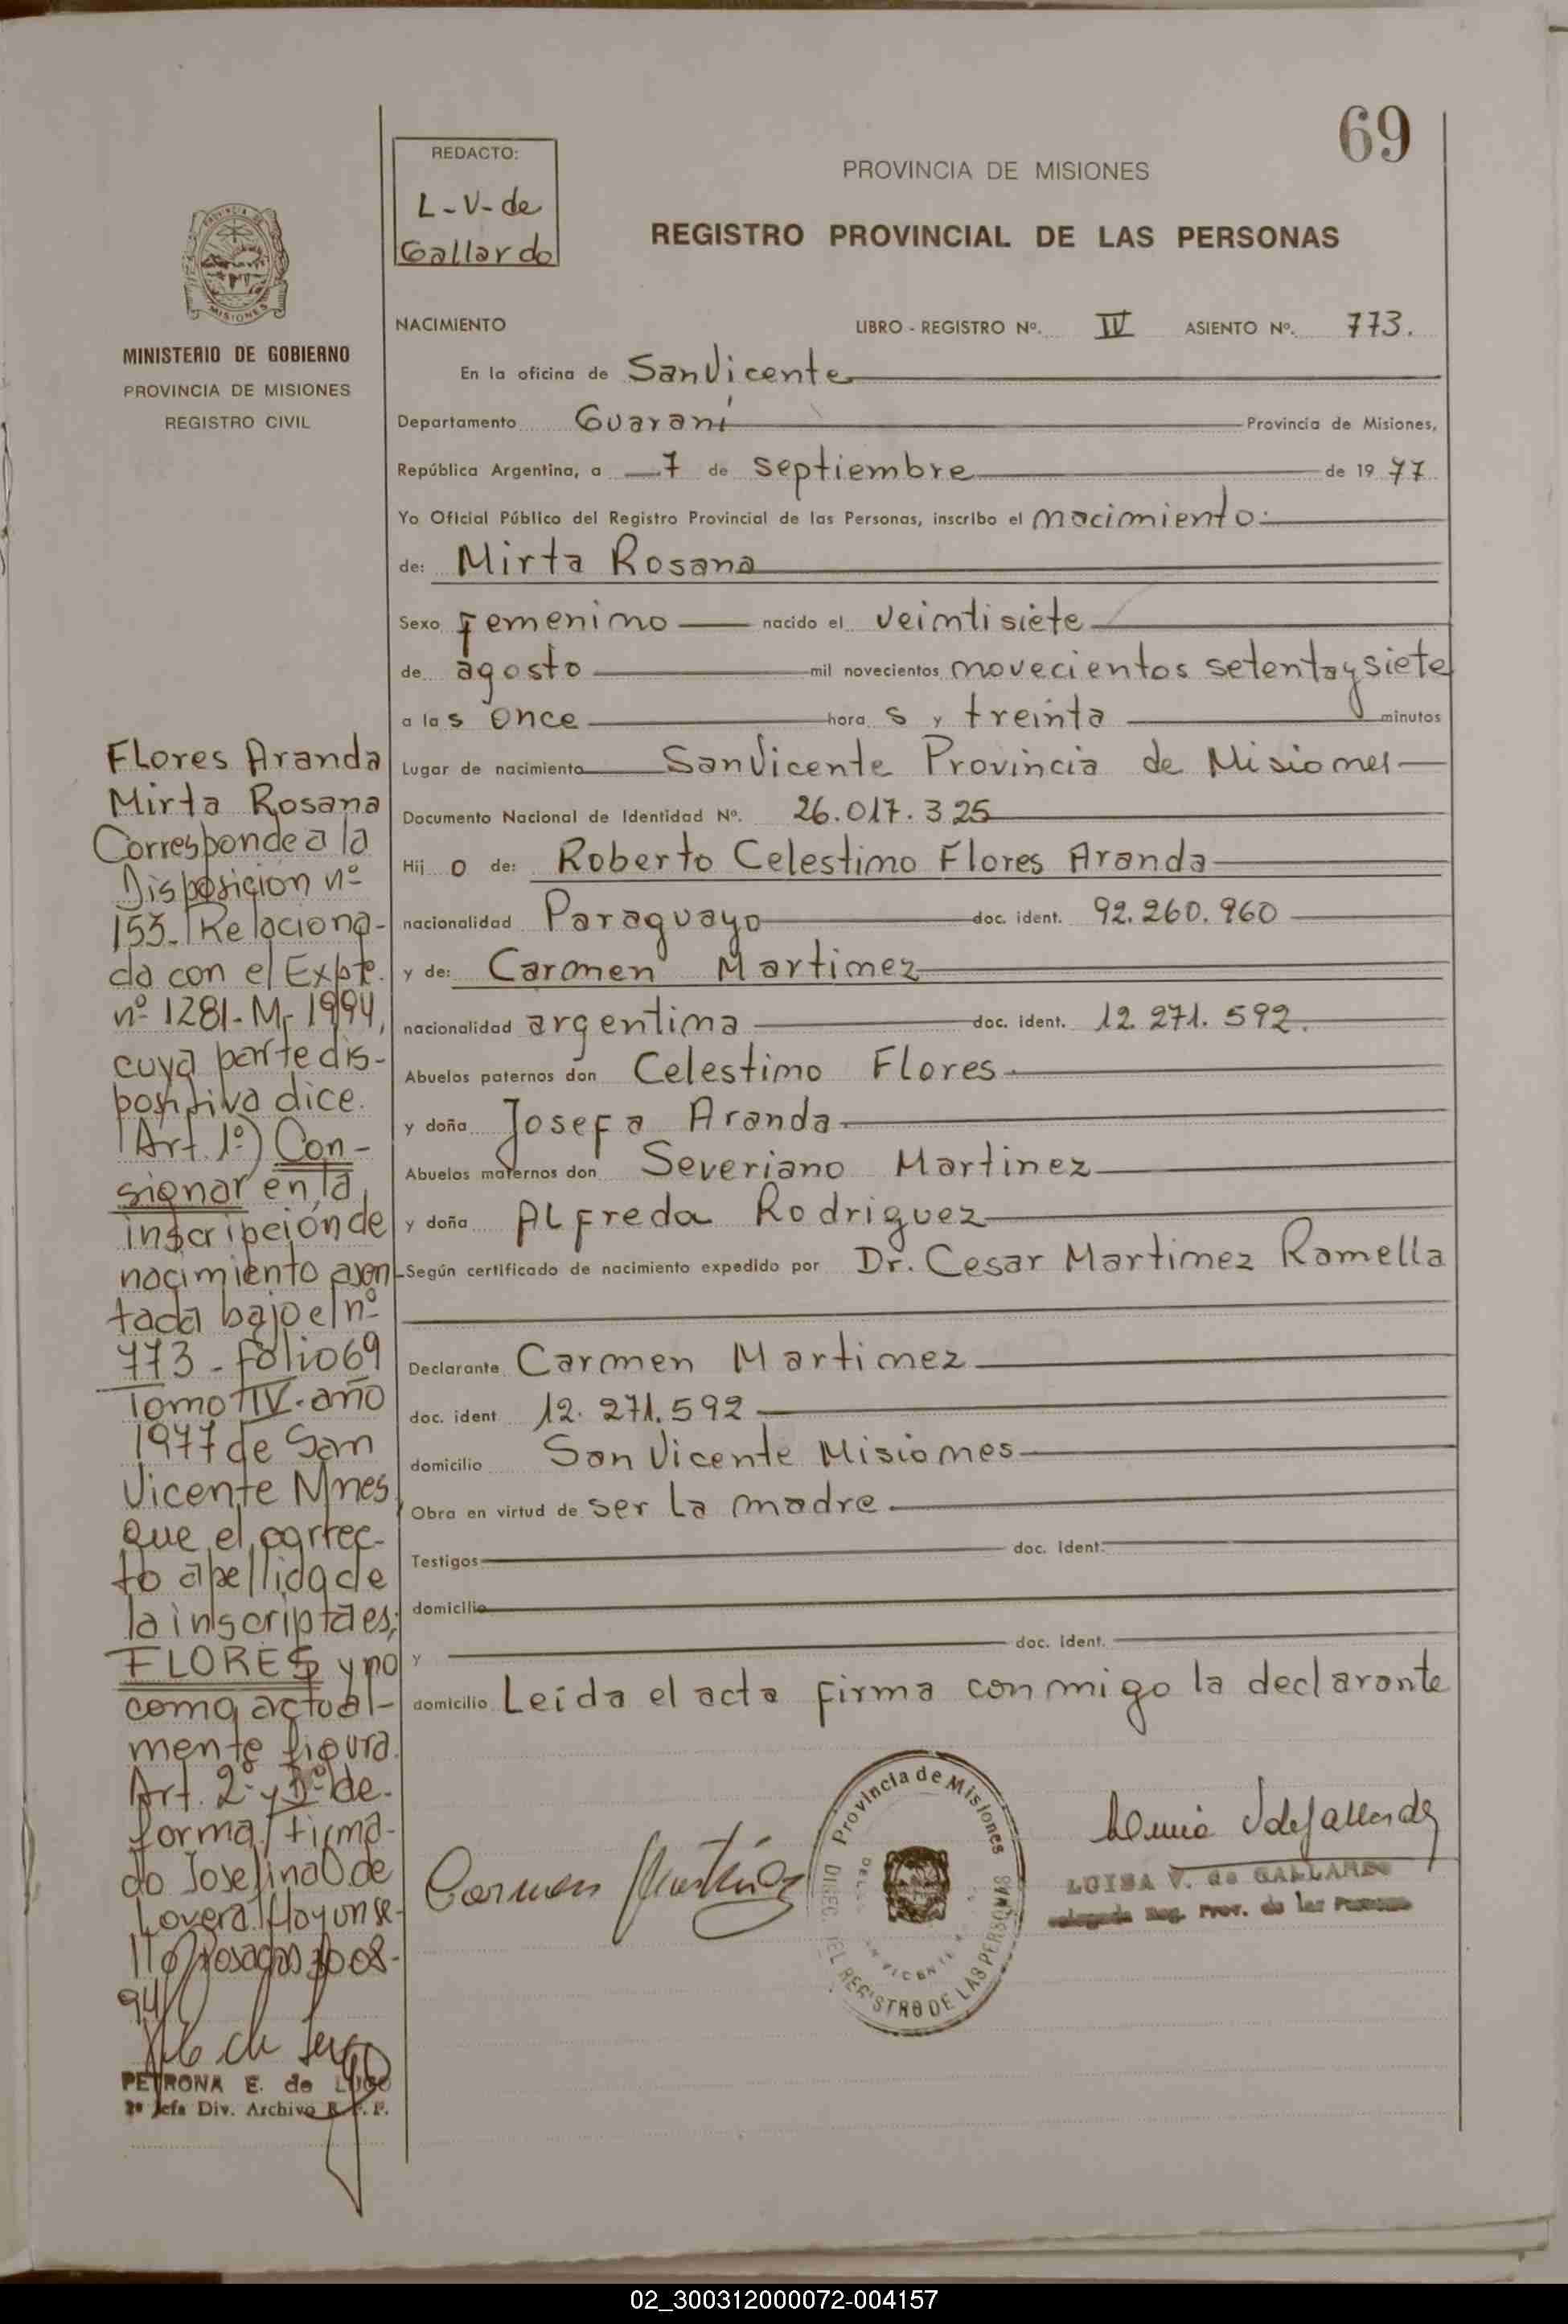 69
REDACTO:
L-V-de
Gallardo
PROVINCIA DE MISIONES
REGISTRO PROVINCIAL DE LAS PERSONAS
MINISTERIO DE GOBIERNO
PROVINCIA DE MISIONES
REGISTRO CIVIL
NACIMIENTO LIBRO - REGISTRO Nº. IV ASIENTO Nº. 773.
En la oficina de San Vicente
Departamento Guaraní Provincia de Misiones,
República Argentina, a 7 de septiembre de 19 77
Yo Oficial Público del Registro Provincial de las Personas, inscribo el nacimiento:
de: Mirta Rosana
Sexo Femenino nacido el veintisiete
de agosto mil novecientos novecientos setenta y siete
a las once horas y treinta minutos
Lugar de nacimiento San Vicente Provincia de Misiones
Documento Nacional de Identidad Nº. 26.017.325
Hij o de: Roberto Celestino Flores Aranda
nacionalidad Paraguayo doc. ident. 92.260.960
y de: Carmen Martinez
nacionalidad argentina doc. ident. 12.271.592.
Abuelos paternos don Celestino Flores
y doña Josefa Aranda
Abuelos maternos don Severiano Martinez
y doña ALfreda Rodriguez
Según certificado de nacimiento expedido por Dr. Cesar Martinez Ramella
Declarante Carmen Martinez
doc. ident 12.271.592
domicilio San Vicente Misiones
Obra en virtud de ser la madre
Testigos doc. ident.
domicilio
y doc. ident.
domicilio Leída el acta firma conmigo la declarante
Flores Aranda
Mirta Rosana
Corresponde a la
Disposicion nº
153. Relaciona-
da con el Expte.
nº 1281-M-1994,
cuya parte dis-
positiva dice.
Art. 1º) Con-
signar en la
inscripción de
nacimiento asen
tada bajo el nº
773 - folio 69
Tomo IV. año
1977 de San
Vicente Mnes,
que el correc-
to apellido de
la inscripta es;
FLORES y no
como actual-
mente figura.
Art. 2º y 3º de
forma. Firma-
do Josefina O de
Lovera. Hay un se-
llo Posadas 30-08-
94
PETRONA E. de LUGO
2ª Jefa Div. Archivo R. P. P.
Carmen Martínez
Provincia de Misiones
DIREC. DEL REGISTRO DE LAS PERSONAS
LUISA V. de GALLARDO
Delegada Reg. Prov. de las Personas
02_300312000072-004157